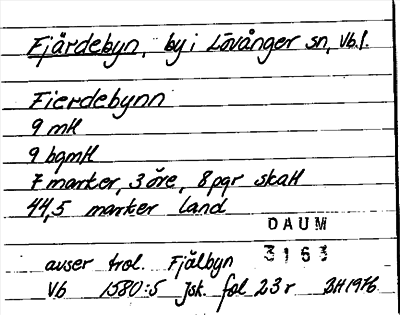 Fjärdebyn, by i Lövånger sn, Vb l.
Fierdebynn
9 mtl
9 bgmtl
7 marker, 3 öre, 8 pgr skatt
44,5 marker land
DAUM
3163
avser trol. Fjälbyn
Vb 1580:5 Jsk. fol 23 r BH 1976